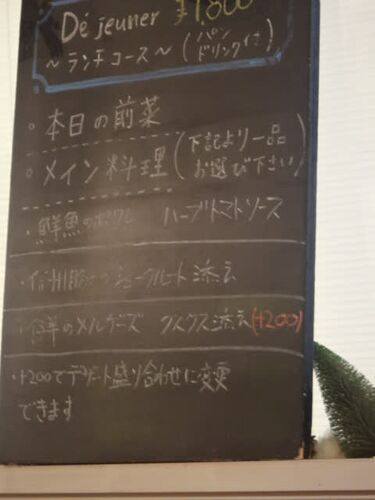 Déjeuner ¥1,800
~ランチコース~(パン ドリンク付)
・本日の前菜
・メイン料理(下記より一品 お選び下さい)
・鮮魚のポワレ ハーブトマトソース
・信州豚のシュークルート添え
のメルゲーズ クスクス添え(+200)
・+200でデザート盛り合わせに変更
できます